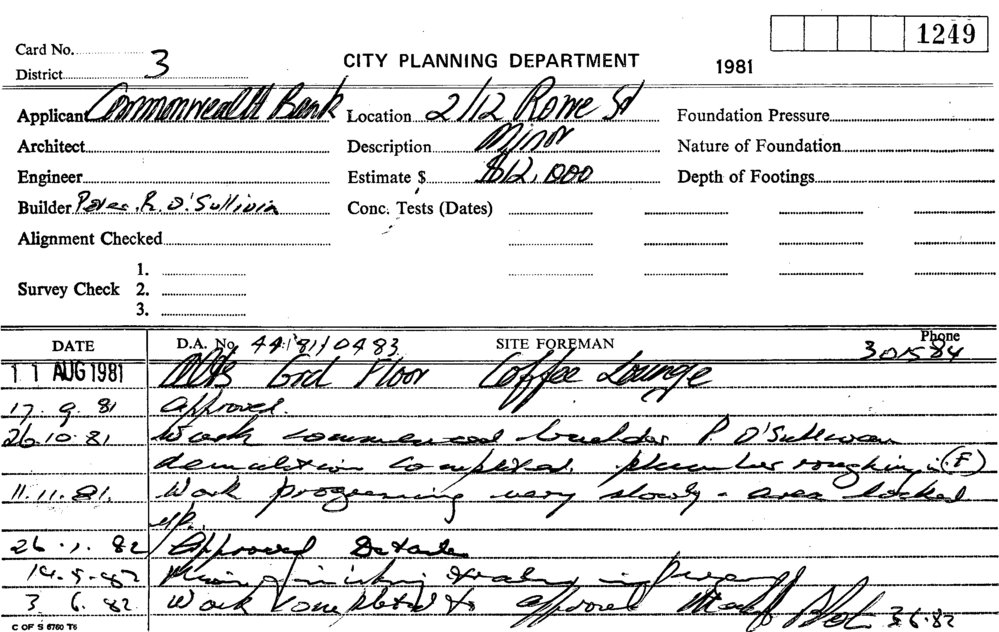 1249
Card No.
District 3
CITY PLANNING DEPARTMENT
1981
Applicant Commonwealth Bank
Location 2/12 Rowe St
Foundation Pressure
Architect
Description Minor
Nature of Foundation
Engineer
Estimate $ $12,000
Depth of Footings
Builder Peter R. O'Sullivin
Conc. Tests (Dates)
Alignment Checked
Survey Check
1.
2.
3.
DATE
D.A. No 44.81.0483
SITE FOREMAN
Phone 301584
11 AUG 1981 Alts Grd Floor Coffee Lounge
17. 9. 81 Approved.
26.10.81 Work commenced builder P O'Sullivan
demolition completed. plumber roughing in (F)
11.11.81. Work progressing very slowly - area locked
up.
26.1.82 Approved Details
14.5.82 finishing in progress
3 6.82 Work completed to approval 3.6.82
C OF S 6760 T6